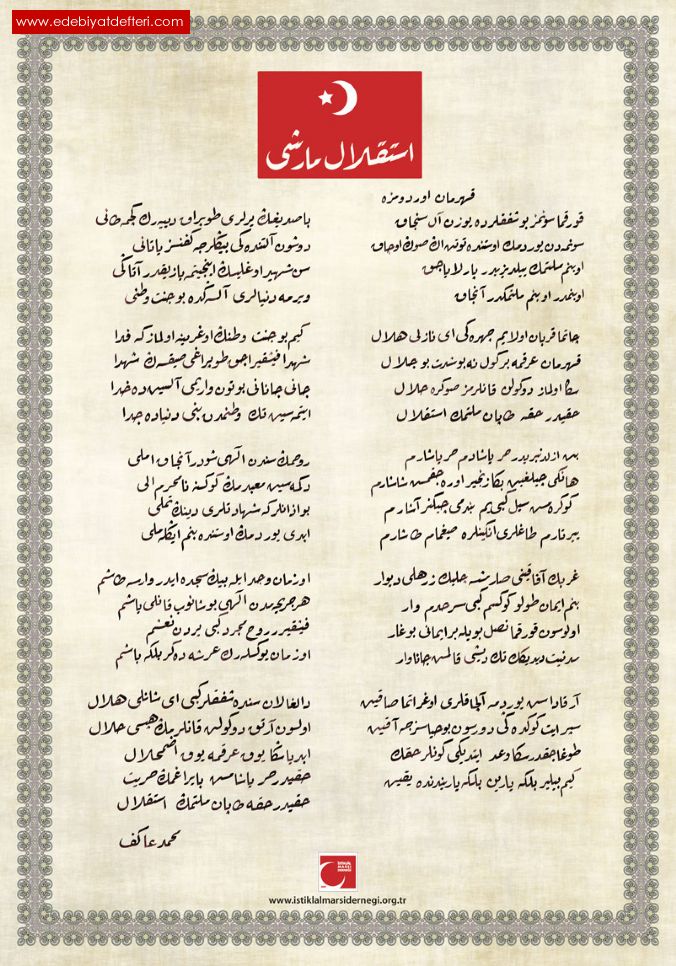 www.edebiyatdefteri.com
استقلال مارشی
قهرمان اوردومزه
قورقما سونمز بو شفقلرده یوزن آل سنجاق
سونمدن یوردمك اوستنده توتن اڭ صوك اوجاق
او بنم ملتمك ییلدیزیدر پارلایاجق
او بنمدر او بنم ملتمكدر آنجاق
چاتما قربان اولایم چهره ڭی ای نازلی هلال
قهرمان عرقمه بر گول نه بو شدت بو جلال
سكا اولماز دوكولن قانلرمز صوكره حلال
حقیدر حقه طاپان ملتمك استقلال
بن ازلدنبریدر حر یاشادم حر یاشارم
هانكی چیلغین بكا زنجیر اوره جقمش شاشارم
كوكره مش سیل كبی یم بندمی چیكنر آشارم
ییرتارم طاغلری انكینلره صیغمام طاشارم
غربك آفاقنی صارمشسه چلیك زرهلی دیوار
بنم ایمان طولو كوكسم كبی سرحدم وار
اولوسون قورقما نصل بویله بر ایمانی بوغار
مدنیت دیدیكك تك دیشی قالمش جاناوار
آرقاداش یوردمه آلچاقلری اوغراتما صاقین
سپر ایت كوكده ڭی دورسون بو حیاسزجه آقین
طوغاجقدر سكا وعد ایتدیكی كونلر حقك
كیم بیلیر بلكه یارین بلكه یاریندنده یقین
باصدیغك یرلری طوپراق دییه رك كچمه طانی
دوشون آلتنده كی بیكلرجه كفنسز یاتانی
سن شهید اوغلیسك اینجیتمه یازیقدر آتاڭی
ویرمه دنیالری آلسه ڭده بو جنت وطنی
كیم بو جنت وطنك اوغرینه اولماز كه فدا
شهدا فیشقیراجق طوپراغی صیقسه ڭ شهدا
جانی جانانی بوتون واریمی آلسین ده خدا
ایتمه سین تك وطنمدن بنی دنیاده جدا
روحمك سندن الهی شودر آنجاق املی
دكمه سین معبدمك كوكسنه نامحرم الی
بو اذانلر كه شهادتلری دینك تملی
ابدی یوردمك اوستنده بنم ایكله ملی
او زمان وجد ایله بیك سجده ایدر وارسه طاشم
هر جریحه مدن الهی بوشانوب قانلی یاشم
فیشقیرر روح مجرد كبی یردن نعشم
او زمان یوكسله رك عرشه دكر بلكه باشم
دالغالان سنده شفقلر كبی ای شانلی هلال
اولسون آرتق دوكولن قانلرمك هپسی حلال
ابدیا سكا یوق عرقمه یوق اضمحلال
حقیدر حر یاشامش بایراغمك حریت
حقیدر حقه طاپان ملتمك استقلال
محمد عاكف
İSTİKLAL MARŞI DERNEĞİ
www.istiklalmarsidernegi.org.tr